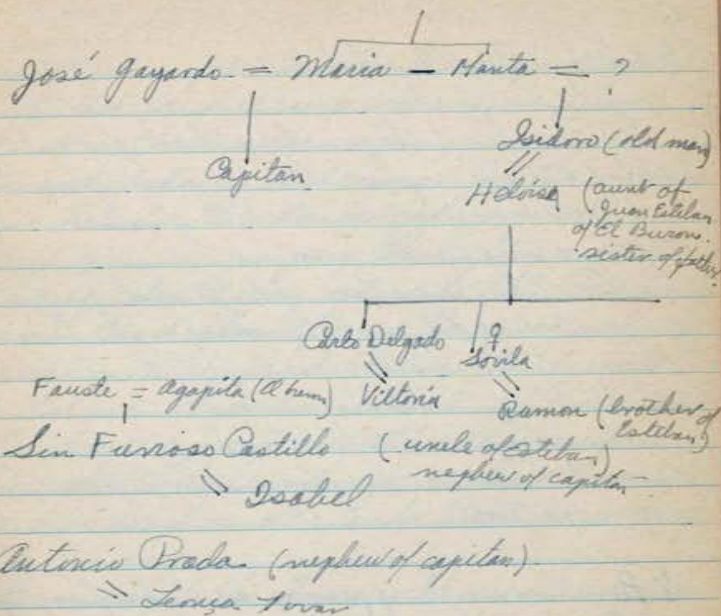 José Gayardo = Maria — Marita = ?
Capitan
Isidoro (old man)
Heloise (aunt of Juan Esteban of El Buron. sister of father.
Carlo Delgado
Viltoria
♀
Lovila
Ramon (brother of Esteban)
Fauste = Agapita
Sin Furroso Castillo (uncle of Esteban) nephew of capitan
Isabel
Antonio Prada (nephew of capitan)
Tovar